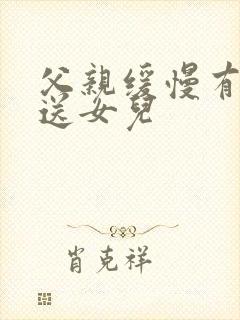 父親缓慢有
送女兒
肖克祥